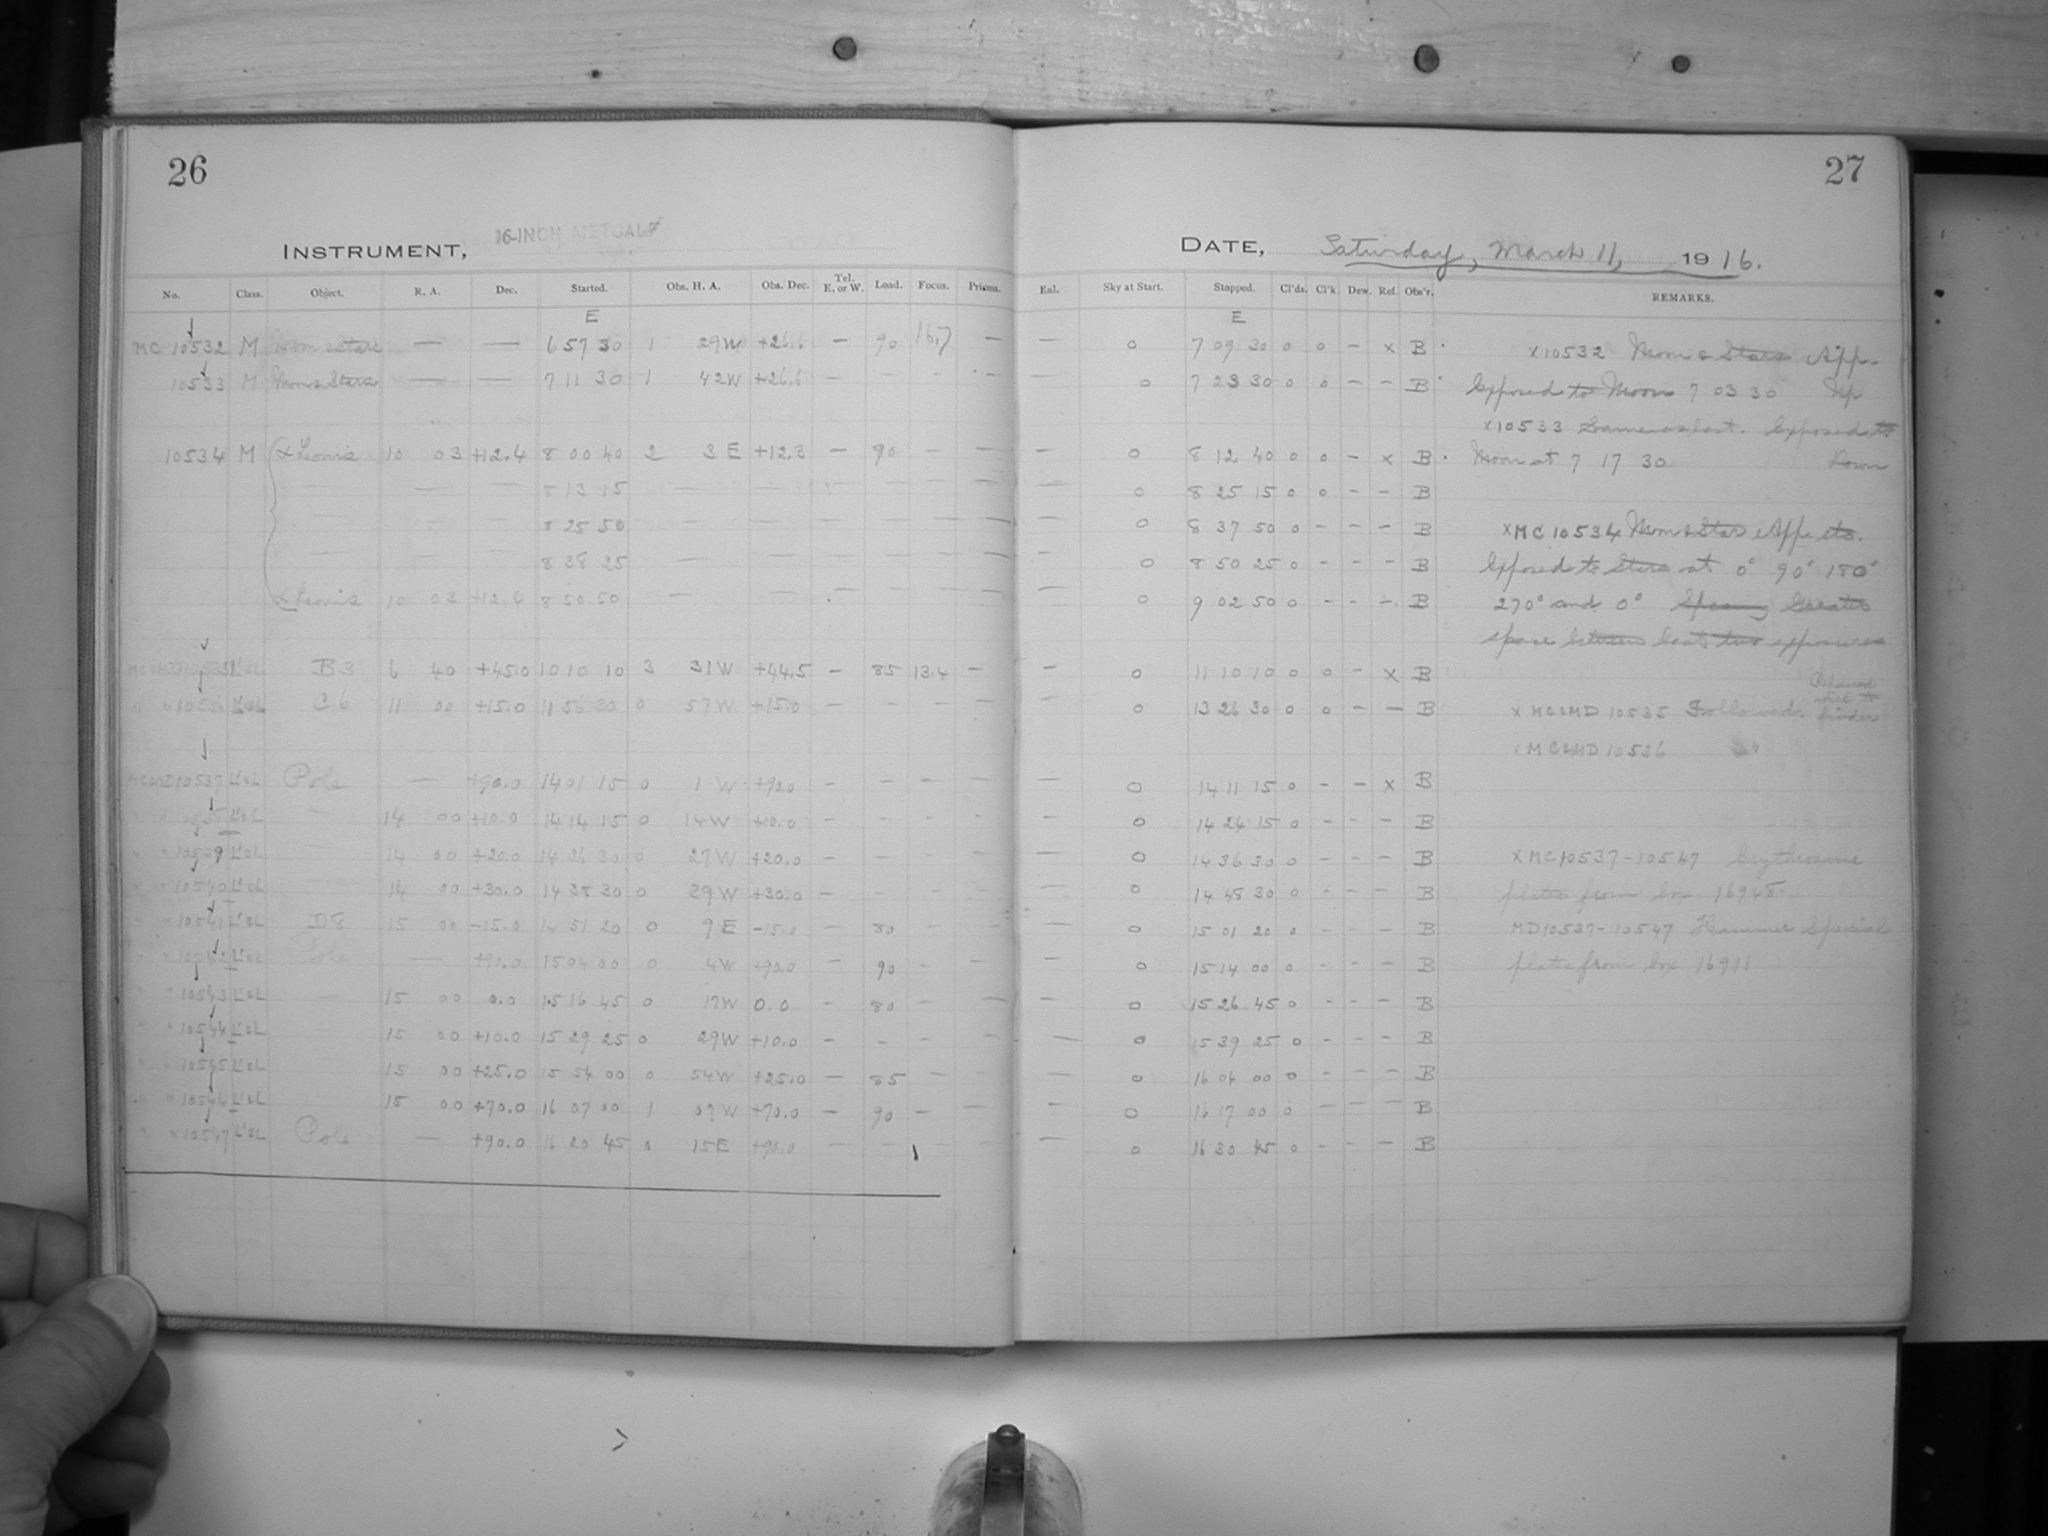 26
16-INCH METCALF
INSTRUMENT,
No. Class. Object. R. A. Dec. Started. Obs. H. A. Obs. Dec. Tel. E. or W. Load. Focus. Prisms.
E
MC 10532 M Moon & Stars — — 6 57 30 1 29W +26.6 — 90 16.7 —
10533 M Moon & Stars — — 7 11 30 1 42W +26.6 — — — —
10534 M α Leonis 10 03 +12.4 8 00 40 2 3 E +12.3 — 90 — —
— — — 8 13 15 — — — — — —
— — — 8 25 50 — — — — — —
— — — 8 38 25 — — — — — —
α Leonis 10 03 +12.4 8 50 50 — — — — — —
MC&MD 10535 L'&L B3 6 40 +45.0 10 10 10 3 31W +44.5 — 85 13.4 —
" " 10536 L'&L C6 11 00 +15.0 11 56 30 0 57W +15.0 — — — —
MC&MD 10537 L'&L Pole — +90.0 14 01 15 0 1 W +90.0 — — — —
10538 L'&L — 14 00 +10.0 14 14 15 0 14W +10.0 — — — —
" " 10539 L'&L — 14 00 +20.0 14 26 30 0 27W +20.0 — — — —
" " 10540 L'&L — 14 00 +30.0 14 38 30 0 39W +30.0 — — — —
" " 10541 L'&L D8 15 00 -15.0 14 51 20 0 9 E -15.0 — 80 — —
" " 10542 L'&L Pole — +90.0 15 04 00 0 4W +90.0 — 90 — —
" " 10543 L'&L — 15 00 0.0 15 16 45 0 17W 0.0 — 80 — —
" " 10544 L'&L 15 00 +10.0 15 29 25 0 29W +10.0 — — — —
" " 10545 L'&L 15 00 +25.0 15 54 00 0 54W +25.0 — 85 — —
" " 10546 L'&L 15 00 +70.0 16 07 00 1 07W +70.0 — 90 — —
" " 10547 L'&L Pole — +90.0 16 20 45 0 15E +90.0 — — —
27
DATE, Saturday, March 11, 1916.
Enl. Sky at Start. Stopped. Cl'ds. Cl'k. Dew. Ref. Obs'r. REMARKS.
E
— 0 7 09 30 0 0 — x B x10532 Moon & Stars App.
— 0 7 23 30 0 0 — — B Exposed to Moon 7 03 30 Up
x10533 Same as last. Exposed to
— 0 8 12 40 0 0 — x B Moon at 7 17 30 Down
— 0 8 25 15 0 0 — — B
— 0 8 37 50 0 — — — B xMC10534 Moon & Star App. etc.
— 0 8 50 25 0 — — — B Exposed to Stars at 0° 90° 180°
— 0 9 02 50 0 — — — B 270° and 0° Spacing Greater
space between last two exposures
— 0 11 10 10 0 0 — x B
— 0 13 26 30 0 0 — — B x MC&MD 10535 Followed.
x MC&MD 10536 "
— 0 14 11 15 0 — — x B
— 0 14 24 15 0 — — — B
— 0 14 36 30 0 — — — B xMC10537-10547 Erythrosine
— 0 14 48 30 0 — — — B plates from box 16948.
— 0 15 01 20 0 — — — B MD10537-10547 Hammer Special
— 0 15 14 00 0 — — — B plates from box 16911
— 0 15 26 45 0 — — — B
— 0 15 39 25 0 — — — B
— 0 16 04 00 0 — — — B
— 0 16 17 00 0 — — — B
— 0 16 30 45 0 — — — B